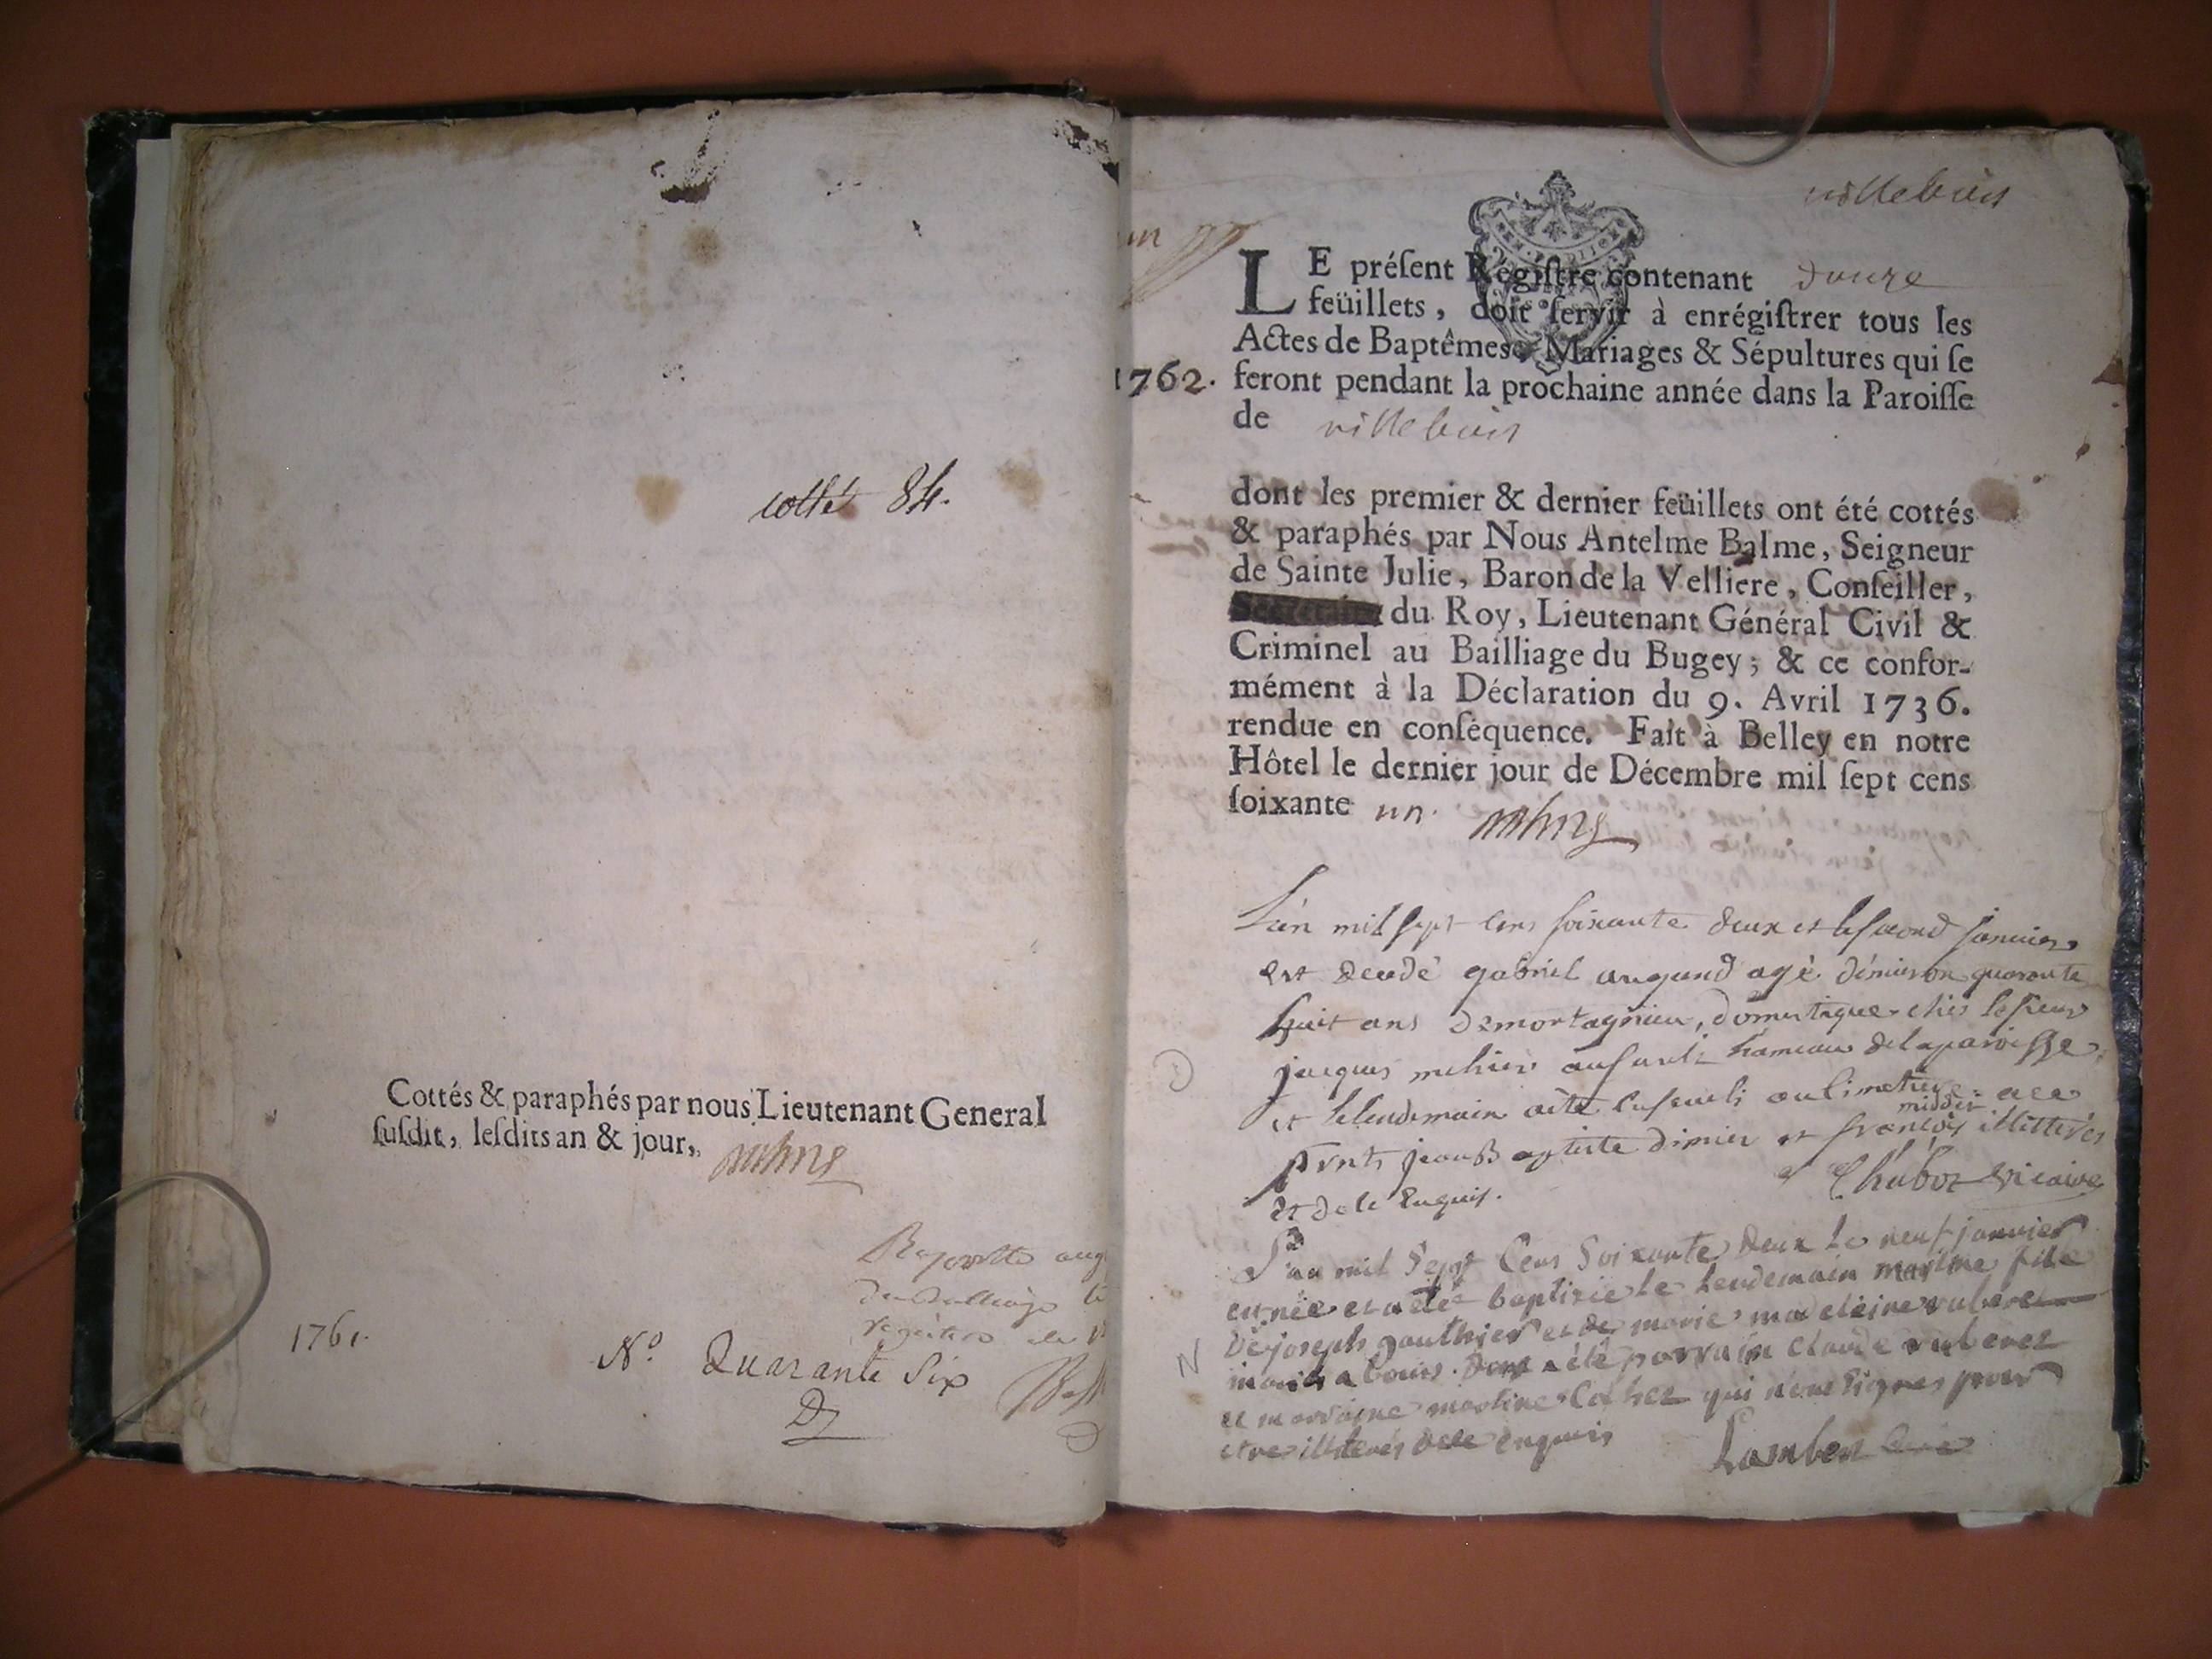 cotté 84.
Cottés & paraphés par nous Lieutenant General
ſuſdit, leſdits an & jour,
Raporté au g
du Bailliage le
1761.
N.º Quarante Six
villebois
un
LE préſent Régiſtre contenant douze
feüillets, doit ſervir à enrégiſtrer tous les
Actes de Baptêmes, Mariages & Sépultures qui ſe
1762. feront pendant la prochaine année dans la Paroiſſe
de villebois
dont les premier & dernier feüillets ont été cottés
& paraphés par Nous Antelme Balme, Seigneur
de Sainte Julie, Baron de la Velliere, Conſeiller,
Secretaire du Roy, Lieutenant Général Civil &
Criminel au Bailliage du Bugey; & ce confor-
mément à la Déclaration du 9. Avril 1736.
rendue en conſéquence. Fait à Belley en notre
Hôtel le dernier jour de Décembre mil ſept cens
ſoixante un.
L'an mil sept cens soixante deux et le second janvier
est decedé gabriel augand agé d'environ quarante
huit ans de mortagnieu, domestique chés le sieur
jacques hameau de la paroisse
et le lendemain a été enseveli au cimetiere a ce
prnts jean Baptiste dimier et françois illitterés
et de ce Enquis. Chuboz vicaire
L'an mil Sept Cens Soixante Deux Le neuf janvier
est née et a été baptisée le Lendemain martine fille
De joseph gauthier et de marie madeleine ruberet
mariés a bouis. a été parrain claude ruberet
et marraine martine qui n'ont Signés pour
etre illiterés de ce enquis Lambert Curé